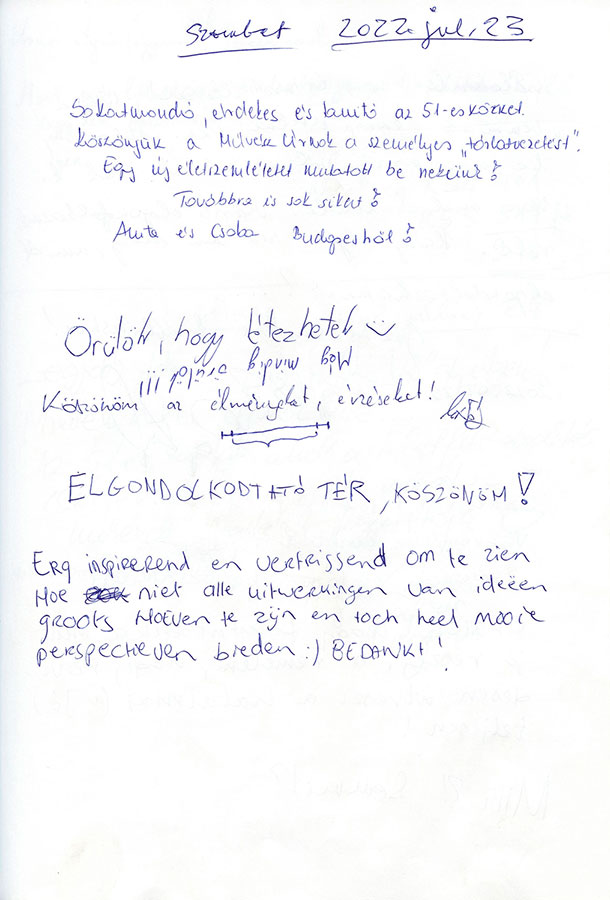 Szombat 2022. jul. 23
Sokatmondó, érdekes és tanító az 51-es körzet.
Köszönjük a Művész Úrnak a személyes „tárlatvezetést”.
Egy új életszemléletet mutatott be nekünk!
Továbbra is sok sikert!
Anita és Csaba Budapestről!
Örülök, hogy létezhetek :)
Még mindig
Köszönöm az élményeket, érzéseket!
ELGONDOLKODTATÓ TÉR, KÖSZÖNÖM!
Erg inspirerend en verfrissend om te zien
Hoe niet alle uitwerkingen van ideëen
groots Hoeven te zijn en toch heel mooie
perspectieven bieden :) BEDANKT!